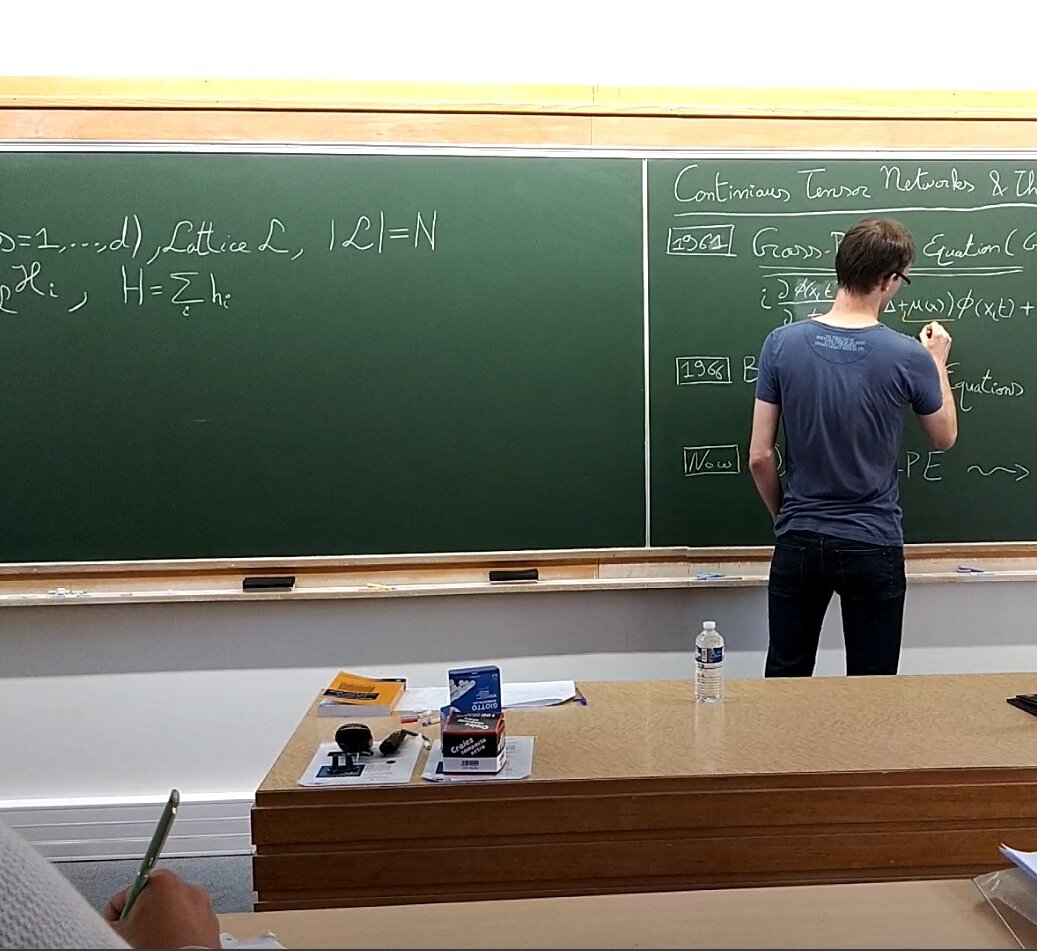 s=1,...,d), Lattice ℒ, |ℒ|=N
ℋᵢ, H=∑ᵢ hᵢ
Continious Tensor Networks & Th
1961 Gross- Equation (G
i ∂ϕ(x,t ∆+μ(x))ϕ(x,t) +
∂
1966 B Equations
Now PE ⇝
GIOTTO
Craies